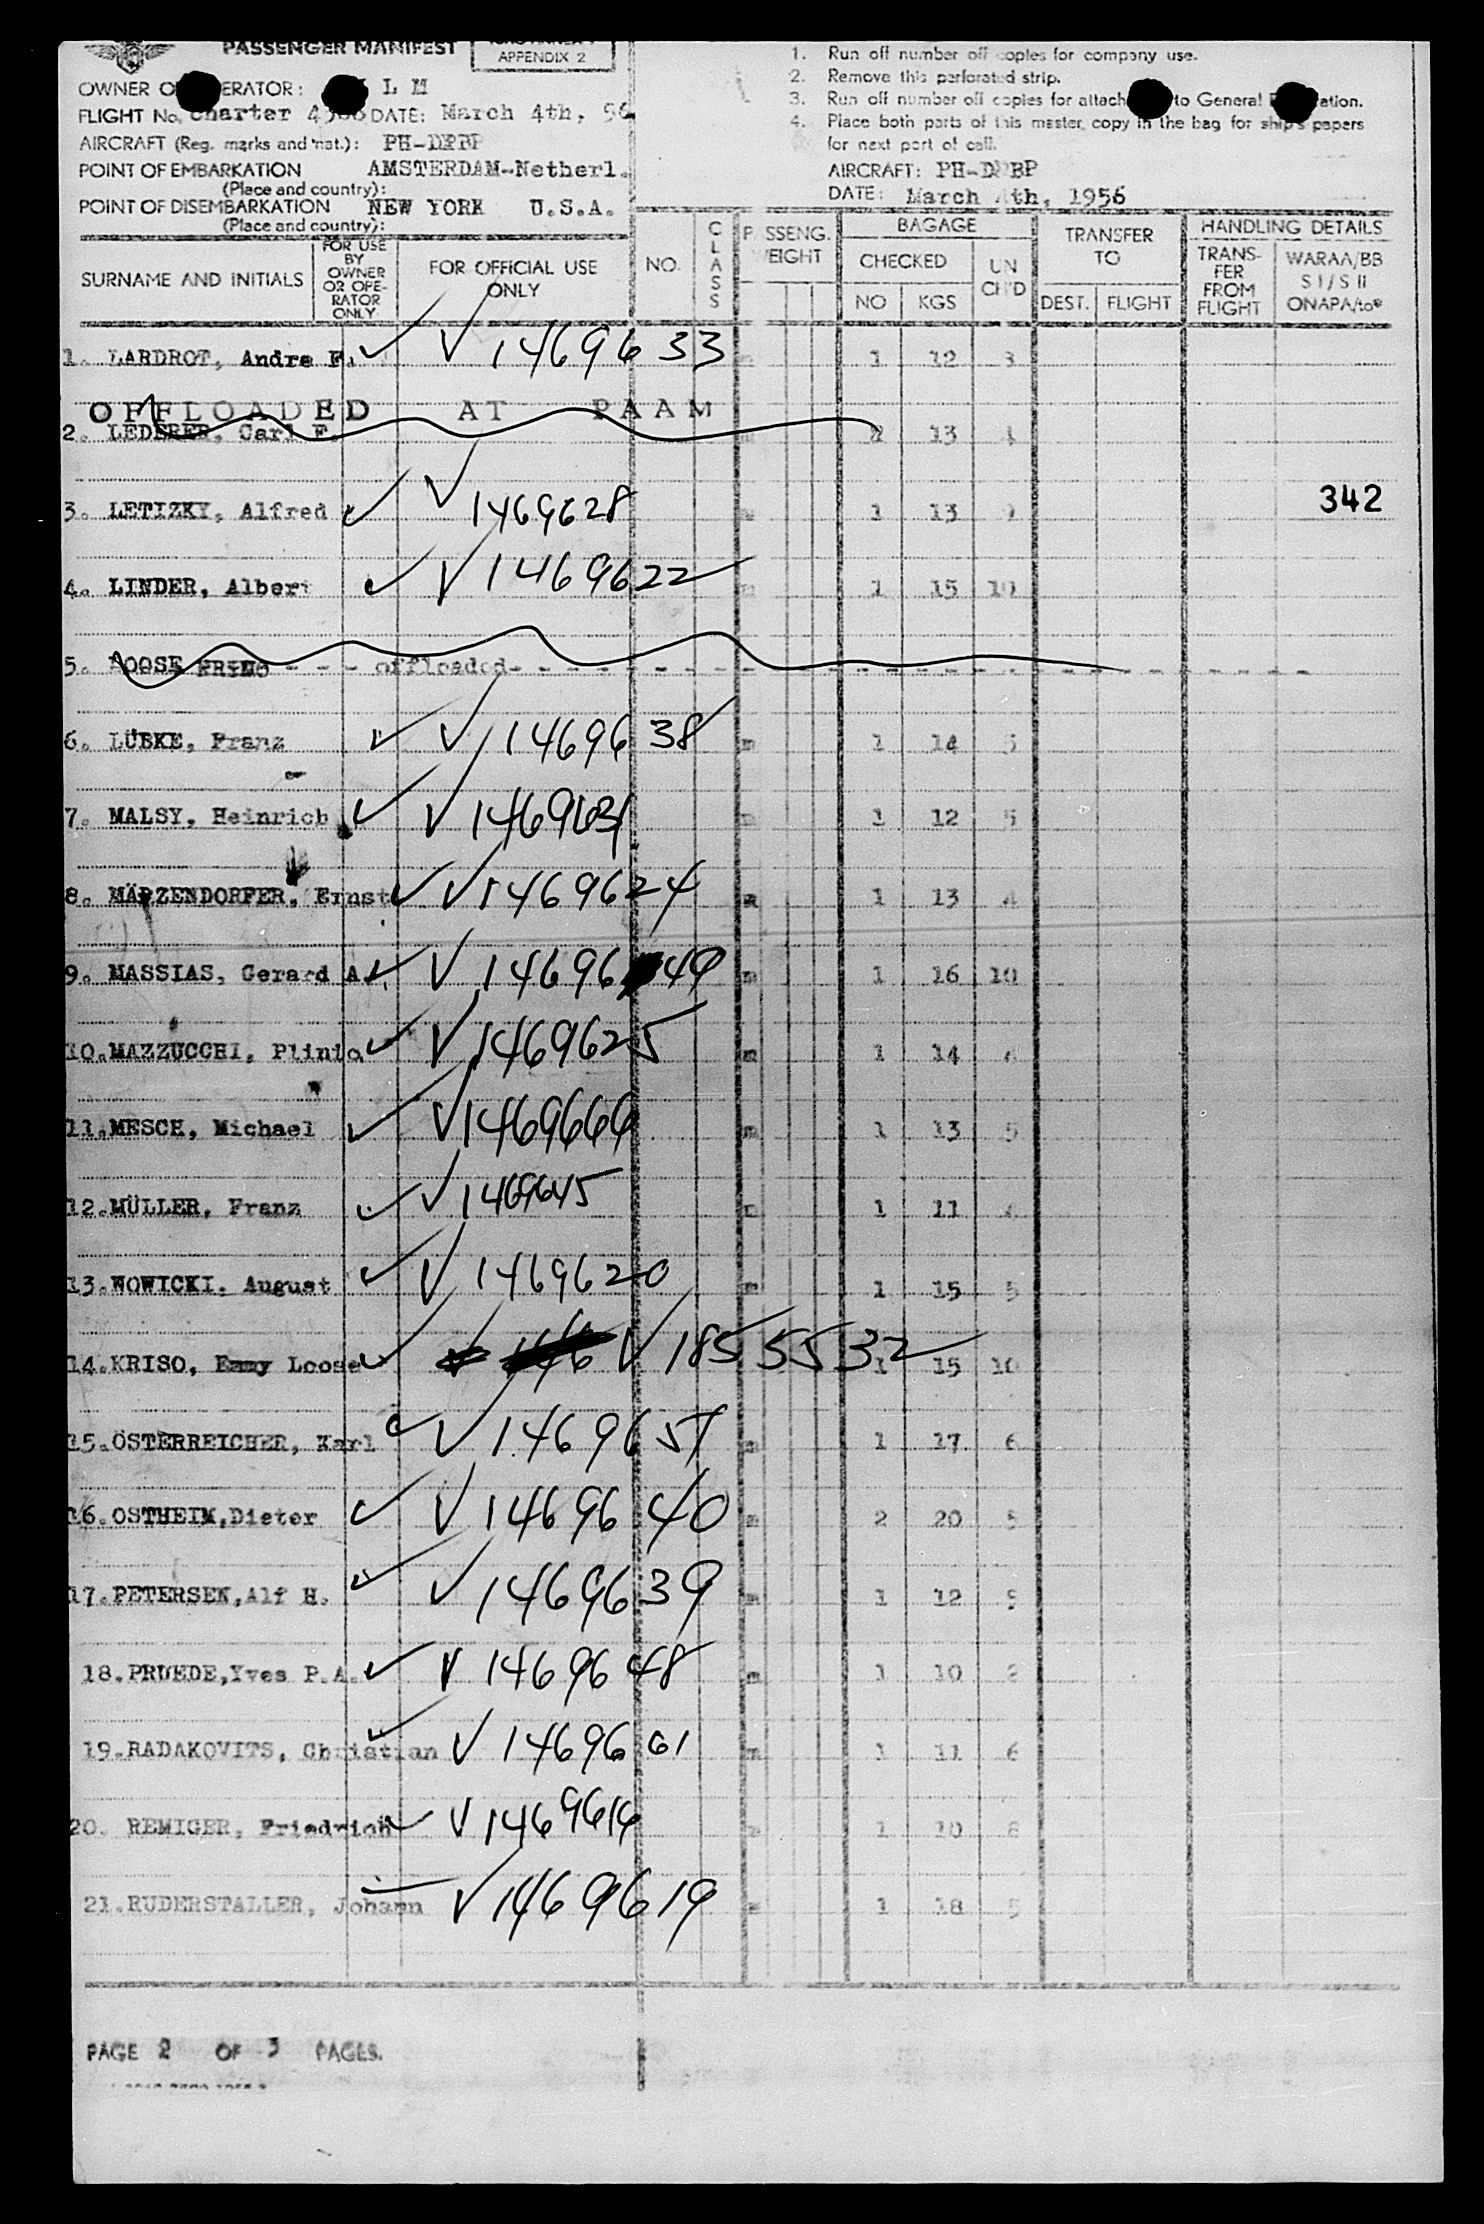 PASSENGER MANIFEST
APPENDIX 2
OWNER O ERATOR: L M
FLIGHT No. Charter DATE: March 4th, 56
AIRCRAFT (Reg. marks and nat.):
POINT OF EMBARKATION AMSTERDAM-Netherl.
(Place and country):
POINT OF DISEMBARKATION NEW YORK U.S.A.
(Place and country):
1. Run off number off copies for company use.
2. Remove this perforated strip.
3. Run off number off copies for attach to General ation.
4. Place both parts of this master, copy in the bag for ship's papers
for next port of call.
AIRCRAFT:
DATE: March 4th, 1956
SURNAME AND INITIALS
FOR USE
BY
OWNER
OR OPE-
RATOR
ONLY
FOR OFFICIAL USE
ONLY
NO.
CLASS
PASSENG.
WEIGHT
BAGAGE
CHECKED
NO KGS
UN
CH'D
TRANSFER
TO
DEST. FLIGHT
HANDLING DETAILS
TRANS-
FER
FROM
FLIGHT
WARAA/BB
S I / S II
ONAPA/to*
1. LARDROT, Andre F. 1469633 1 12
OFFLOADED AT PAAM
2. LEDERER, Carl F. 13
3. LETIZKY, Alfred 1469628 1 13
342
4. LINDER, Albert 1469622 m 1 15 10
5. LOOSE - - - offloaded - - -
6. LÜBKE, Franz 1469638 m 1 14 5
7. MALSY, Heinrich m 1 12 5
8. MÄRZENDORFER, Ernst 1469624 m 1 13 4
9. MASSIAS, Gerard A. 1469649 m 1 16 10
10. MAZZUCCHI, Plinio 1469625 m 1 14
11. MESCH, Michael m 1 13 5
12. MÜLLER, Franz 1469645 m 1 11
13. NOWICKI, August 1469620 m 1 15 5
14. KRISO, Emmy Loose 1855532 1 15 10
15. ÖSTERREICHER, Karl m 1 17 6
16. OSTHEIM, Dieter 1469640 m 2 20 5
17. PETERSEN, Alf H. 1469639 m 1 12 5
18. PRUEDE, Yves P.A. 1469648 m 1 10 2
19. RADAKOVITS, Christian m 1 11 6
20. REMIGER, Friedrich 1469616 m 1 10 8
21. RUDERSTALLER, Johann 1469619 m 1 18 5
PAGE 2 OF 3 PAGES.